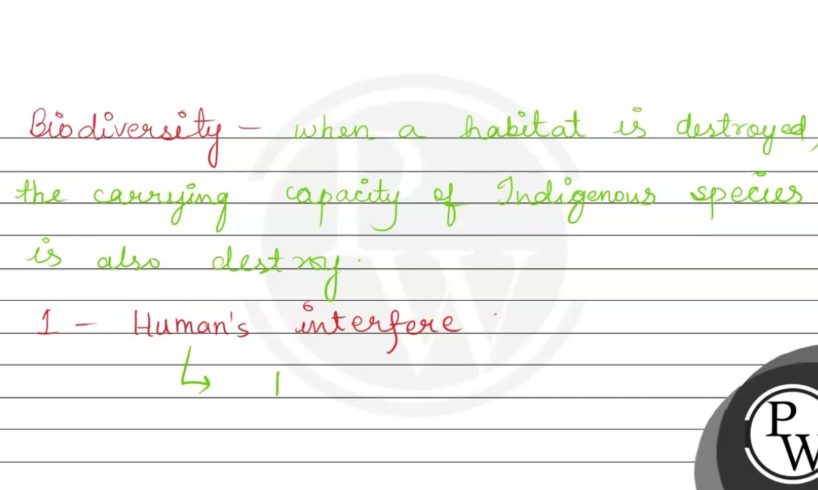 Biodiversity - when a habitat is destroyed,
the carrying capacity of Indigenous species
is also destroy.
1 - Human's interfere
PW
PW